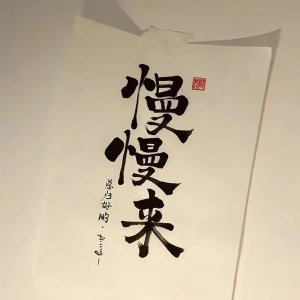 慢慢来
总归好的。